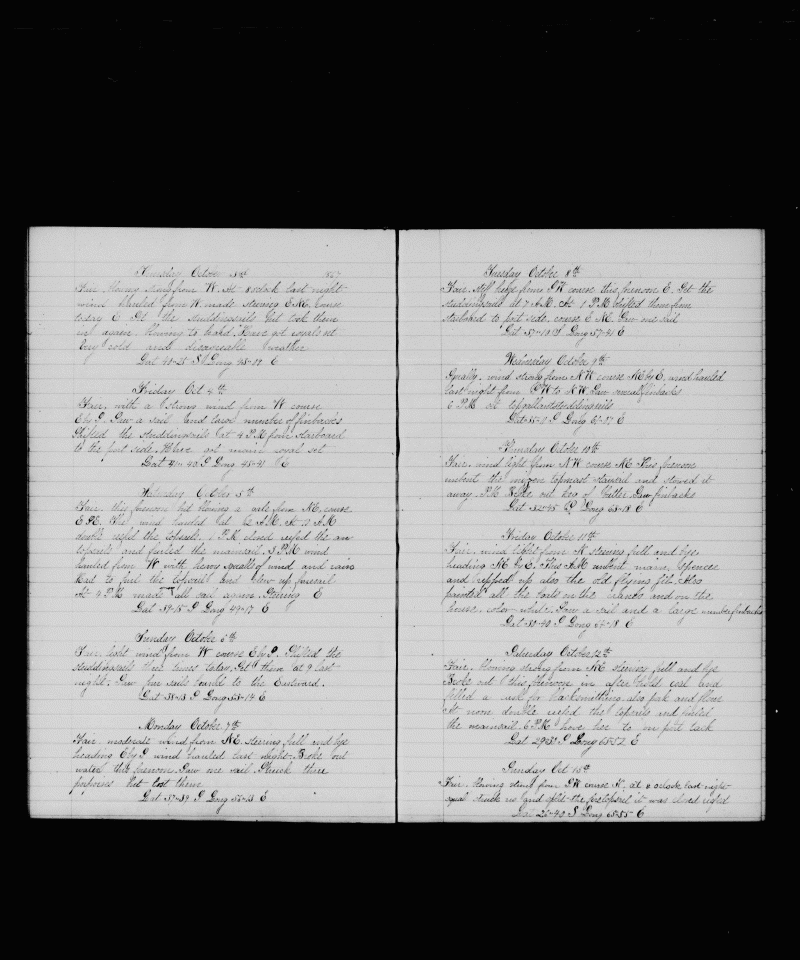 Thursday October 3rd 1867
Fair, blowing strong from W. At 8 oclock last night
wind hauled from W. made steering E NE, course
today E Got the studdingsails but took them
in again. blowing to hard. Have got royals set
Very cold and disagreeable weather
Lat 40-25 S Long E
Friday Oct 4th
Fair, with a strong wind from W course
E by S. Saw a sail and large number of finbacks
Shifted the studdingsails at 4 P.M from starboard
to the port side. Have got main royal set
Lat 40 S Long 45-41 E
Saturday October 5th
Fair, this forenoon but blowing a gale from NE, course
E. The wind hauled at A.M. At 10 A.M
double reefed the topsails. 1 P.M. closed reefed the
topsails and furled the mainsail. 3 P.M wind
hauled from W with heavy squalls of wind and rain
had to furl the topsail and blew up foresail
At 9 P.M made all sail again. Steering E
Lat 39-15 S Long 49-17 E
Sunday October 6th
Fair, light wind from W course E by S. Shifted the
studdingsails three times today. Got them at 9 last
night. Saw four sails bound to the Eastward.
Lat 38-13 S Long 53-14 E
Monday October 7th
Fair, moderate wind from NE. steering full and bye
heading E by S wind hauled last night. Broke out
water this forenoon. Saw one sail Struck three
porpoises but lost them
Lat 37-39 S Long 55-13 E
Tuesday October 8th
Fair, stiff breeze from SW course this forenoon E. Got the
studdingsails at 7 A.M. At 1 P.M shifted them from
starboard to port side, course E NE. Saw one sail
Lat 37-10 S Long 57-41 E
Wednesday October 9th
Squally, wind strong from NW course NE by E, wind hauled
last night from SW to NW. Saw several finbacks
6 P.M set topgallantstuddingsails
Lat 35 S Long E
Thursday October 10th
Fair, wind light from NW course NE This forenoon
unbent the mizen topmast staysail and stowed it
away. P.M. Broke out keg of Butter. Saw finbacks
Lat S Long 63-18 E
Friday October 11th
Fair, wind light from N steering full and bye
heading NE by E. This A.M unbent main spencer
and ripped up also the old flying jib. Also
painted all the boats on the cranes and on the
house, color white. Saw a sail and a large number finbacks
Lat 30-40 S Long 64-18 E
Saturday October 12th
Fair. blowing strong from NE steering full and bye
Broke out this forenoon in after hold coal and
filled a cask for blacksmithing, also pork and flour
At noon double reefed the topsails and furled
the mainsail. 6 P.M. hove too to on port tack
Lat 29 S Long 65-52 E
Sunday Oct 13th
Fair, blowing strong from SW course N. at 2 oclock last night
squall struck us and split the foretopsail it was closed reefed
Lat 26-40 S Long 65-55 E